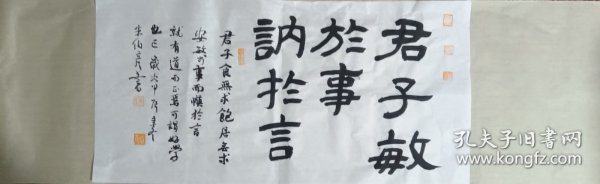 君子敏
於事
訥於言
君子食無求飽居無求
安敏於事而慎於言
就有道而正焉可謂好學
也已
孔夫子旧书网
www.kongfz.com